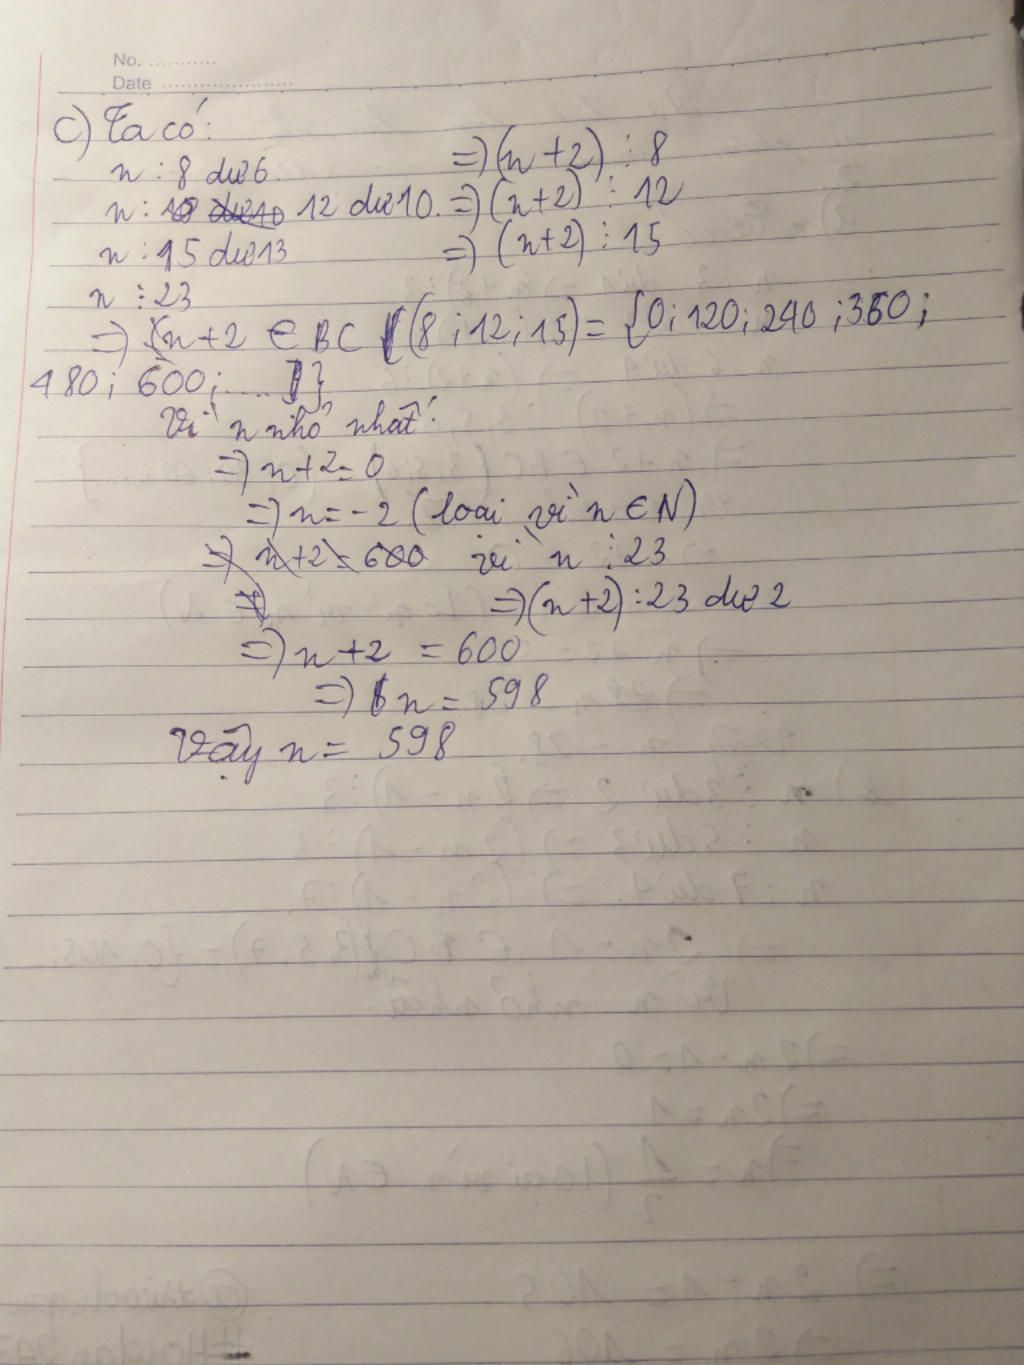 No. ............
Date ........................
c) Ta có:
n : 8 dư 6. => (n+2) ⋮ 8
n : 18 dư 10 12 dư 10. => (n+2) ⋮ 12
n : 15 dư 13 => (n+2) ⋮ 15
n ⋮ 23
=> n+2 ∈ BC (8; 12; 15) = {0; 120; 240; 360;
480; 600; ....}
Vì n nhỏ nhất:
=> n+2 = 0
=> n = -2 (loại vì n ∈ N)
=> n+2 = 600 vì n ⋮ 23
=> => (n+2) : 23 dư 2
=> n+2 = 600
=> n = 598
Vậy n = 598